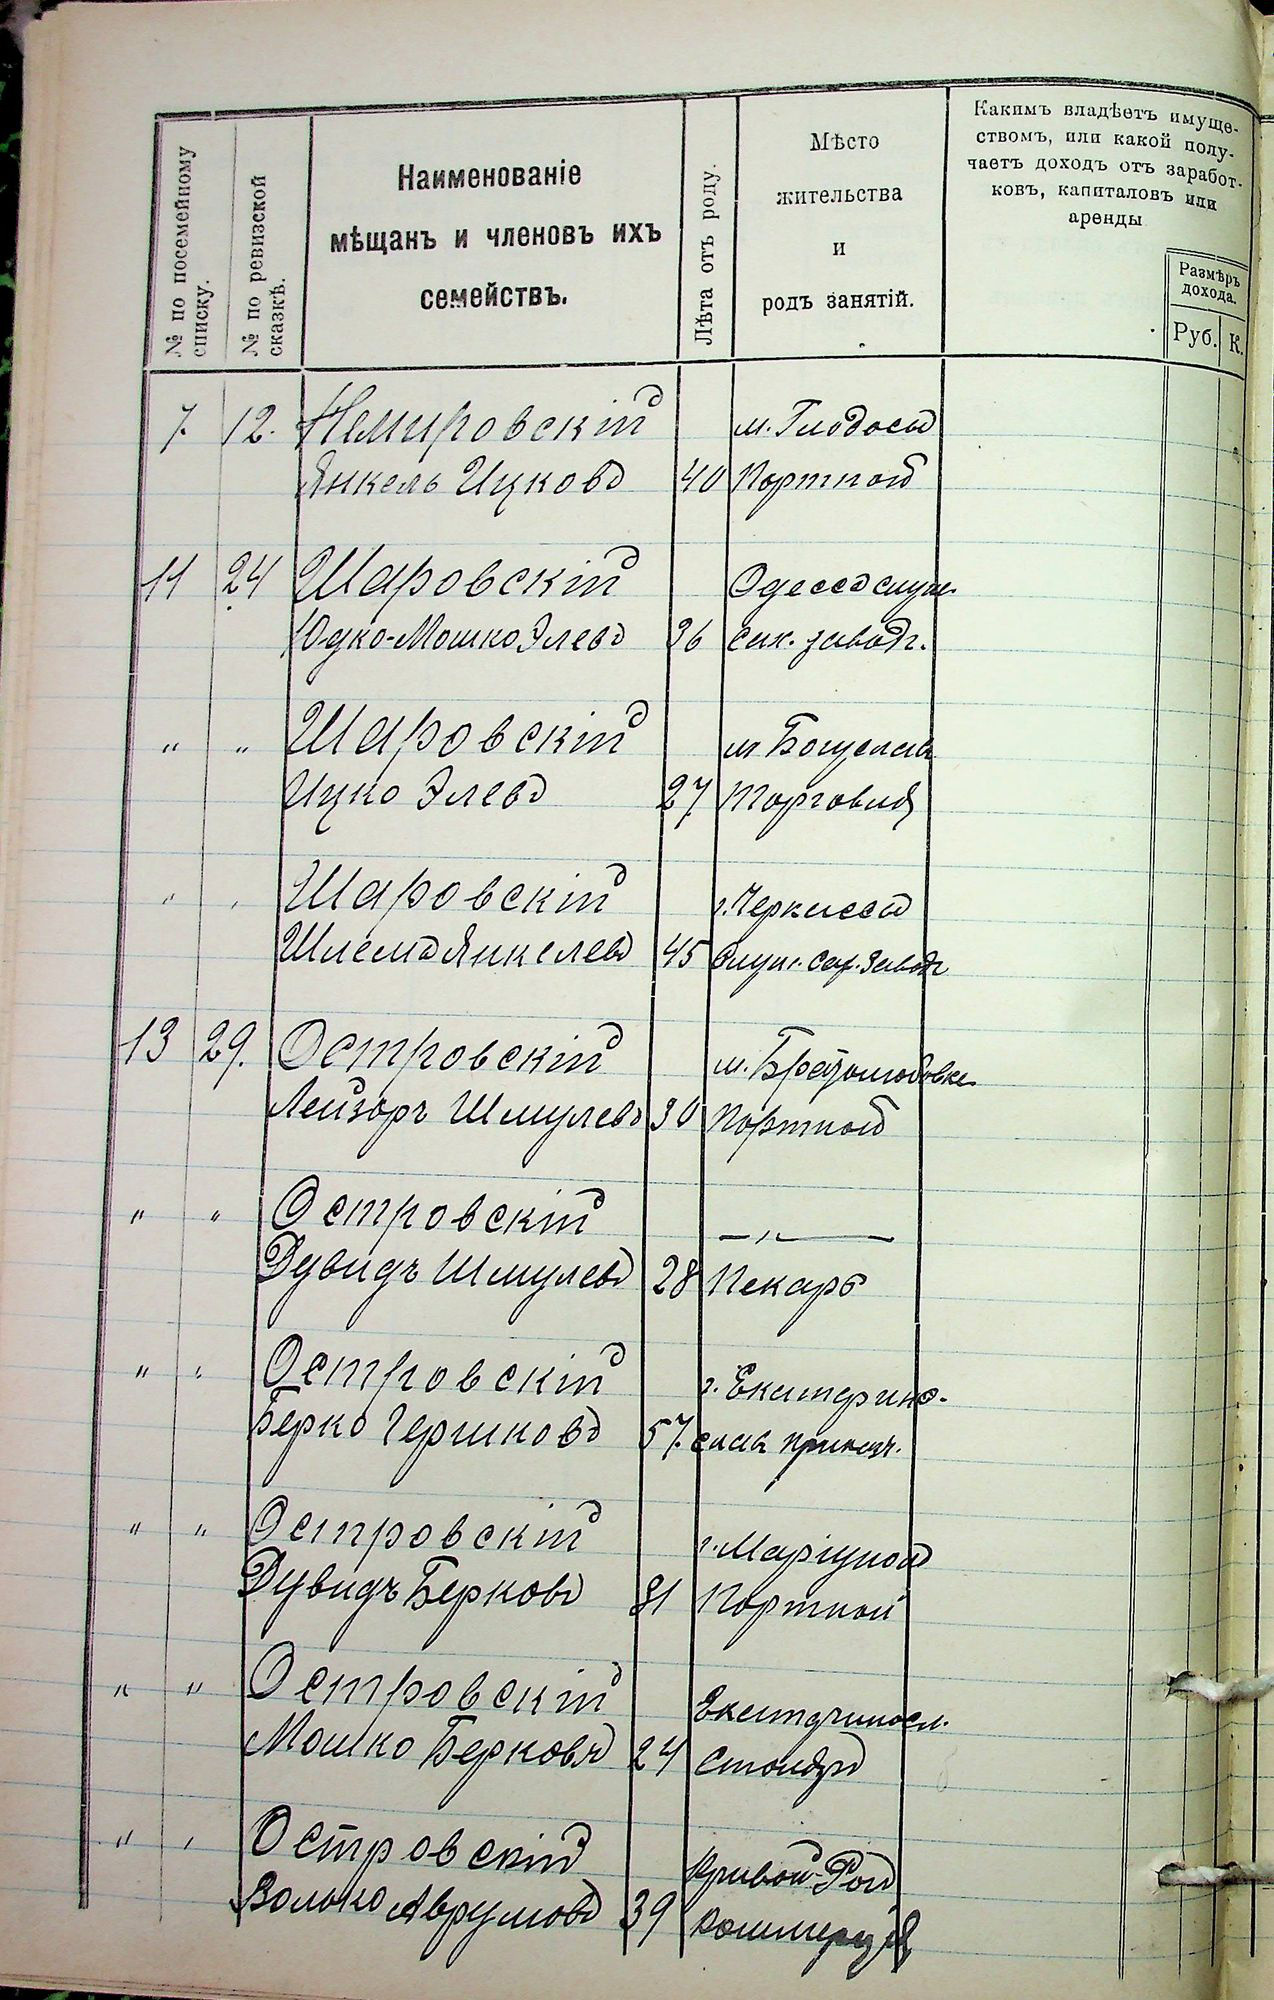 № по посемейному списку.
№ по ревизской сказкѣ.
Наименованіе
мѣщанъ и членовъ ихъ
семействъ.
Лѣта отъ роду.
Мѣсто
жительства
и
родъ занятій.
Какимъ владѣетъ имуще-
ствомъ, или какой полу-
чаетъ доходъ отъ заработ-
ковъ, капиталовъ или
аренды
Размѣръ
дохода.
Руб. К.
7. 12. Немировскій м. Глодосы
Янкель Ицковъ 40 Портной
11 24 Шаровскій Одесса служ.
Юдко-Мошко Элевъ 36 сах. завода.
" " Шаровскій м Богуслав
Ицко Элевъ 27 Торговля
" " Шаровскій г. Черкассы
Шлема Янкелевъ 45 Служ. сах. завод
13 29. Островскій м. Братолюбовке
Лейзоръ Шмулевъ 30 Портной
" " Островскій — " —
Дувидъ Шмулевъ 28 Пекарь
" " Островскій г. Екатерино-
Берко Гершковъ 57. слав приказч.
" " Островскій г. Маріуполь
Дувидъ Берковъ 31 Портной
" " Островскій Екатеринос.
Мошко Берковъ 24
" " Островскій Кривой-Рог
Волько Аврумовъ 39 коммерція